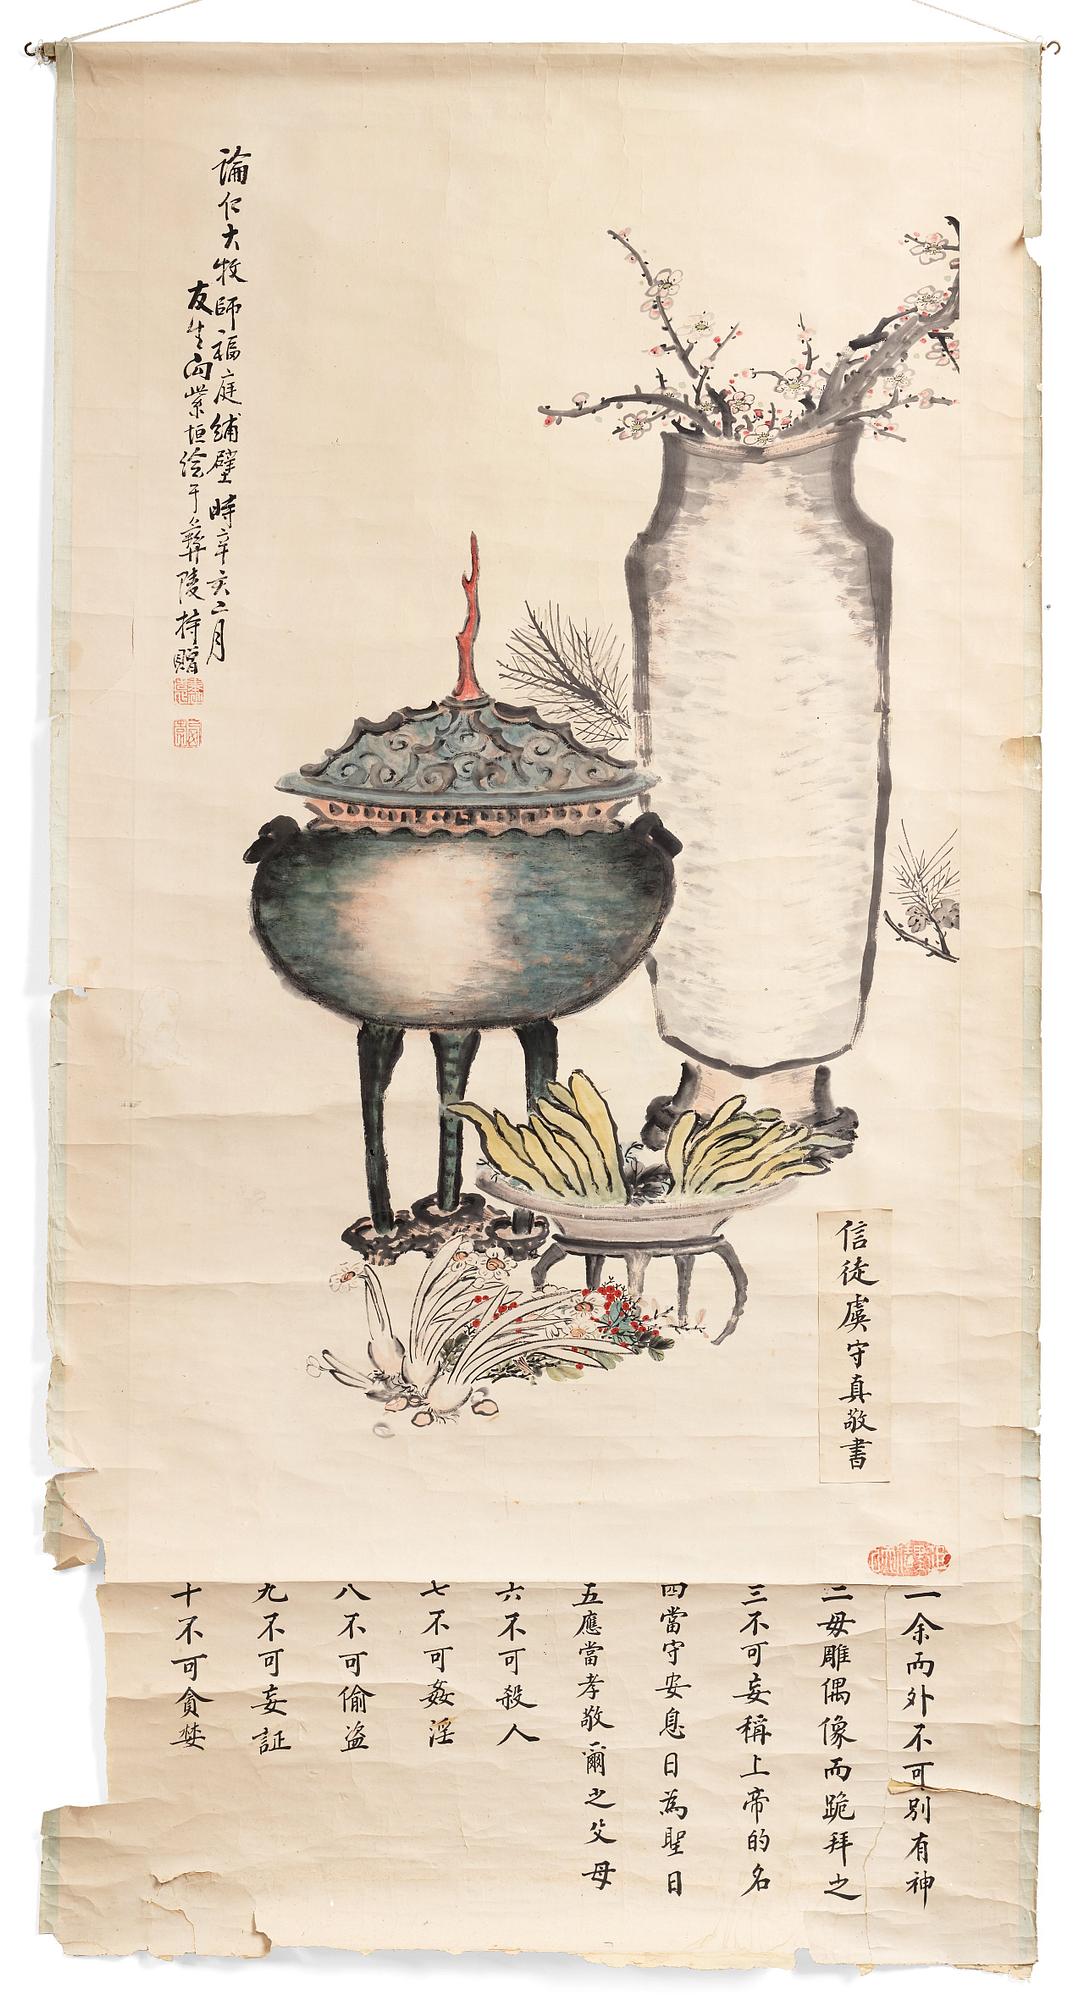 論仁大牧師福庭補壁時辛亥二月
友生向紫垣絵于彝陵持贈
信徒虞守真敬書
一余而外不可別有神
二毋雕偶像而跪拜之
三不可妄稱上帝的名
四當守安息日為聖日
五應當孝敬爾之父母
六不可殺人
七不可姦淫
八不可偷盗
九不可妄証
十不可貪婪